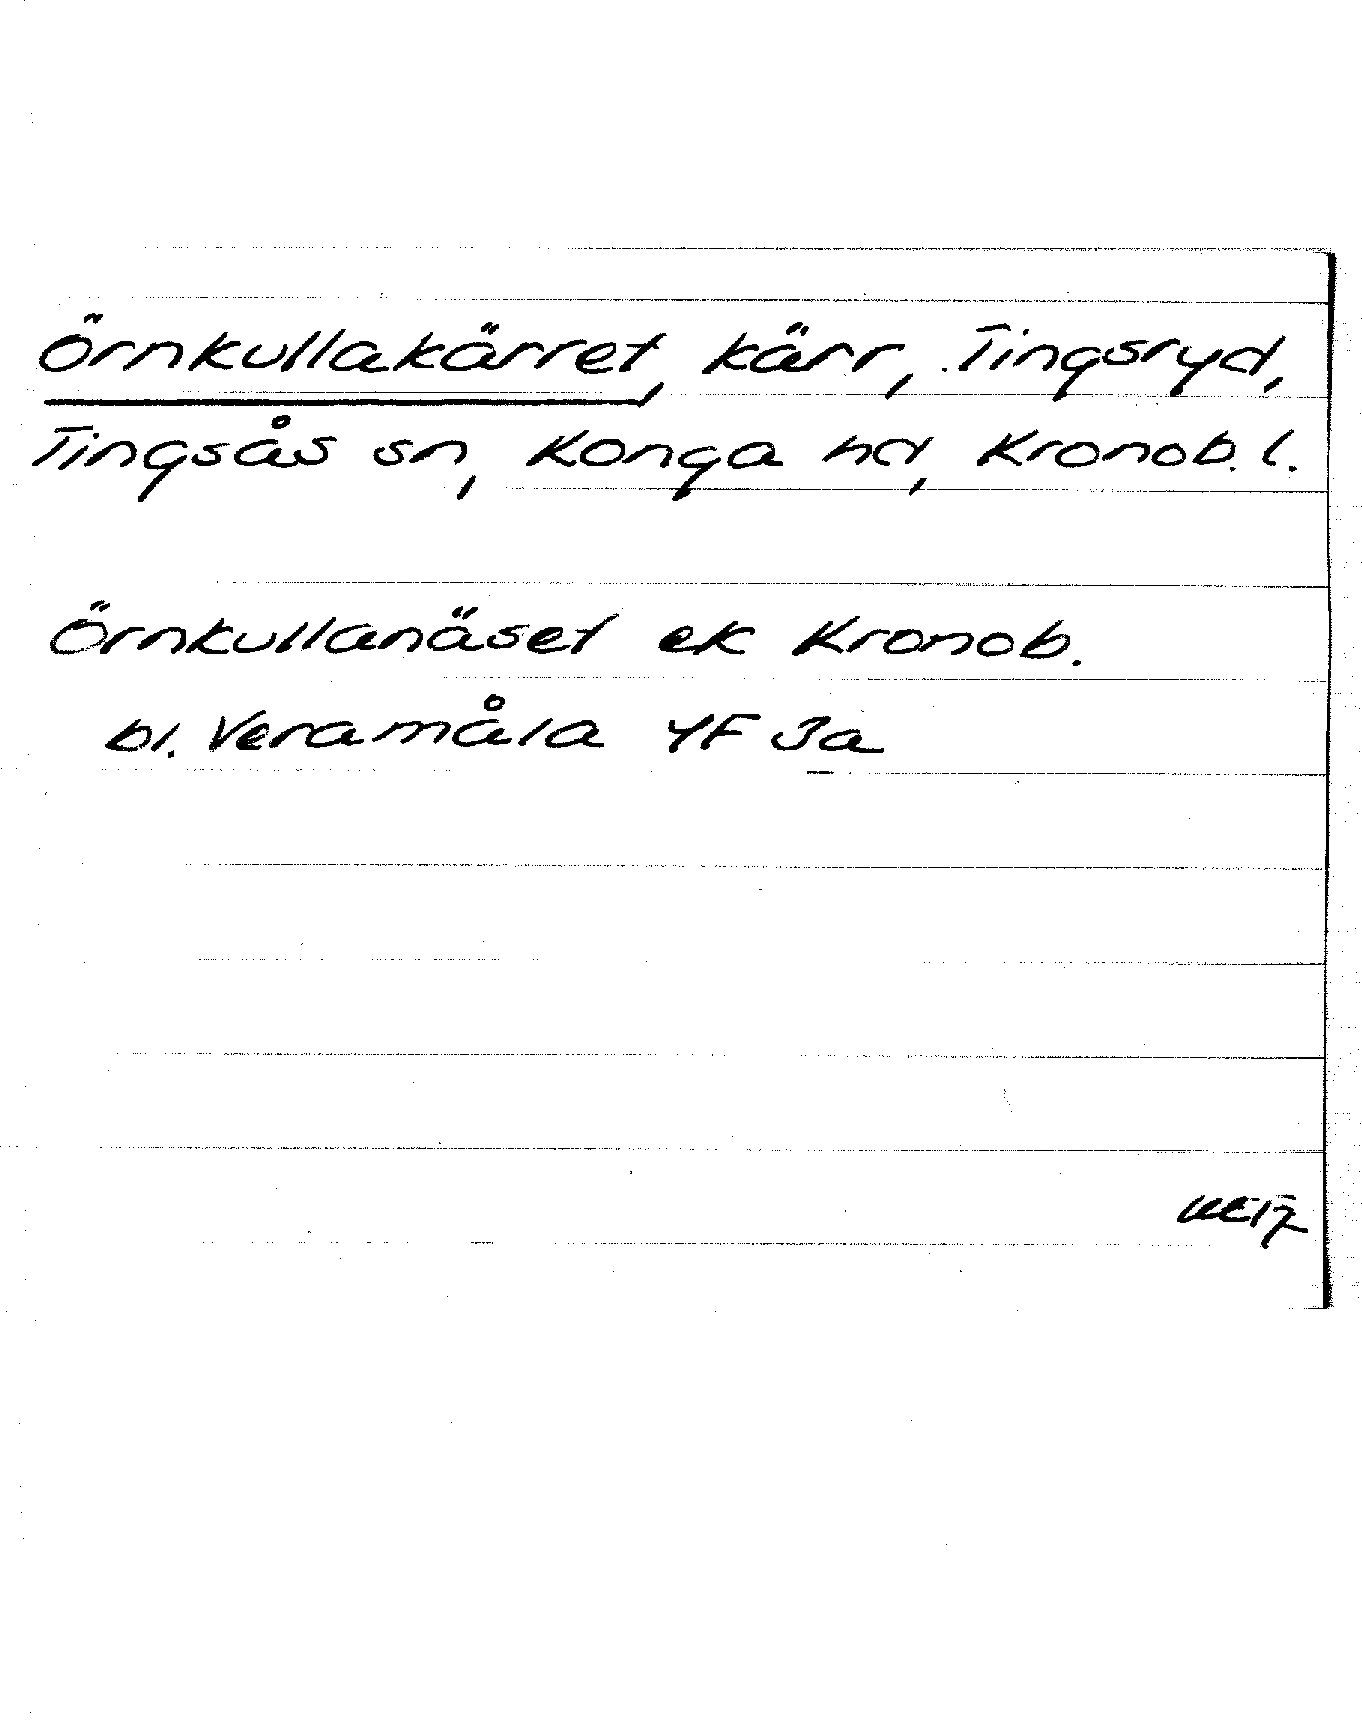 Örnkullakärret, kärr, Tingsryd,
Tingsås sn, Konga hd, Kronob. l.
Örnkullanäset ek Kronob.
bl. Veramåla 4F 3a